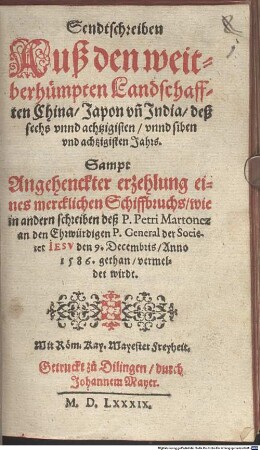 Sendtschreiben
Auß den weit-
berhümpten Landschaff-
ten China/ Japon vñ India/ deß
sechs vnnd achtzigisten/ vnnd siben
vnd achtzigisten Jahrs.
Sampt
Angehenckter erzehlung ei-
nes mercklichen Schiffbruchs/ wie
in andern schreiben deß P. Petri Martonez
an den Ehrwürdigen P. General der Socie-
tet IESV den 9. Decembris/ Anno
1586. gethan/ vermel-
det wirdt.
Mit Röm. Kay. Mayestet Freyheit.
Getruckt zů Dilingen/ durch
Johannem Mayer.
M. D. LXXXIX.